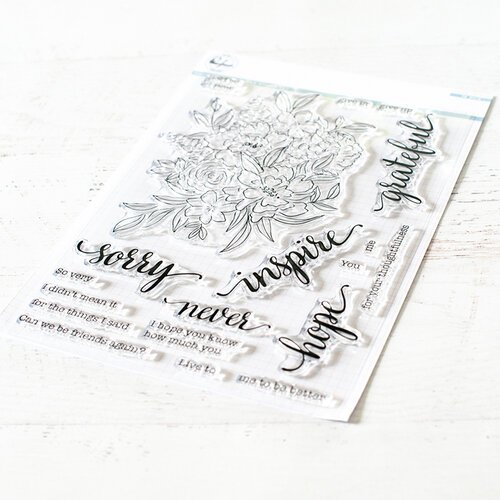 give in / give up
grateful
sorry
inspire
me
you
for your thoughtfulness
so very
i didn't mean it
for the things I said
Can we be friends again?
never
i hope you know
how much you
hope
Live to
me to be better